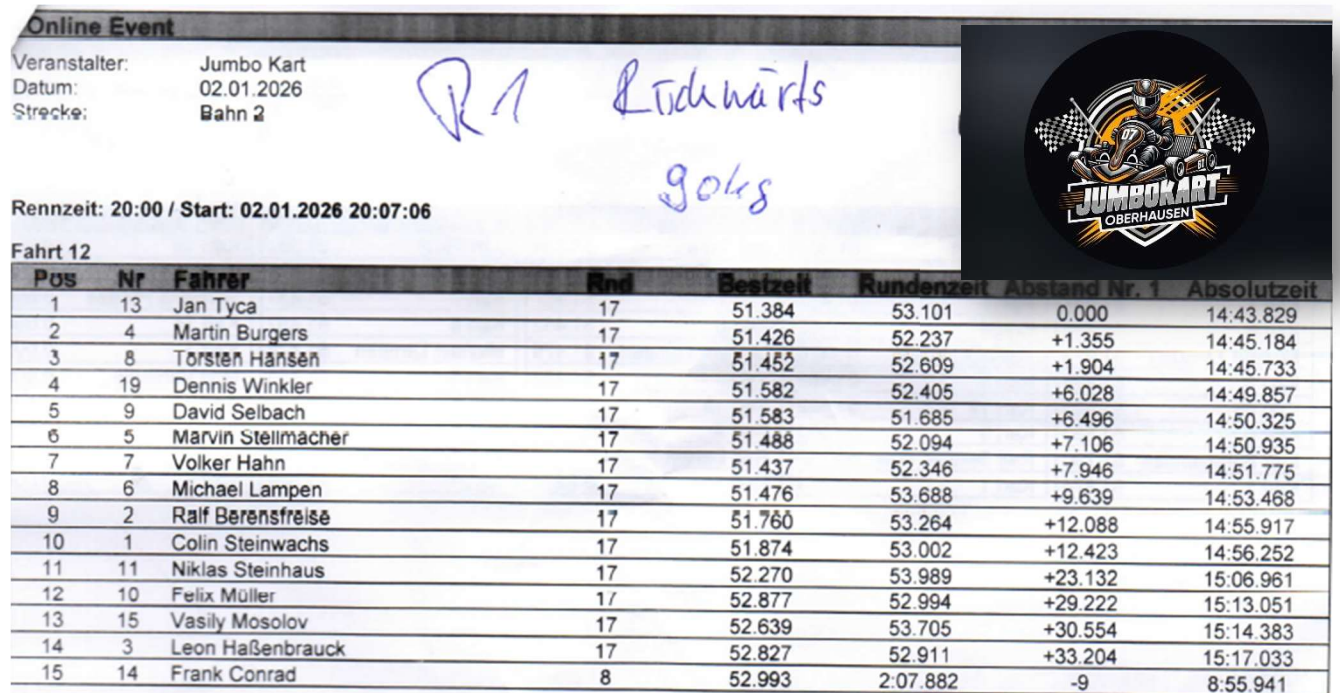 Online Event
Veranstalter: Jumbo Kart
Datum: 02.01.2026
Strecke: Bahn 2
R1 Rückwärts
gokg
Rennzeit: 20:00 / Start: 02.01.2026 20:07:06
07
61
JUMBOKART
OBERHAUSEN
Fahrt 12
Pos Nr Fahrer Rnd Bestzeit Rundenzeit Abstand Nr. 1 Absolutzeit
1 13 Jan Tyca 17 51.384 53.101 0.000 14:43.829
2 4 Martin Burgers 17 51.426 52.237 +1.355 14:45.184
3 8 Torsten Hansen 17 51.452 52.609 +1.904 14:45.733
4 19 Dennis Winkler 17 51.582 52.405 +6.028 14:49.857
5 9 David Selbach 17 51.583 51.685 +6.496 14:50.325
6 5 Marvin Stellmacher 17 51.488 52.094 +7.106 14:50.935
7 7 Volker Hahn 17 51.437 52.346 +7.946 14:51.775
8 6 Michael Lampen 17 51.476 53.688 +9.639 14:53.468
9 2 Ralf Berensfreise 17 51.760 53.264 +12.088 14:55.917
10 1 Colin Steinwachs 17 51.874 53.002 +12.423 14:56.252
11 11 Niklas Steinhaus 17 52.270 53.989 +23.132 15:06.961
12 10 Felix Müller 17 52.877 52.994 +29.222 15:13.051
13 15 Vasily Mosolov 17 52.639 53.705 +30.554 15:14.383
14 3 Leon Haßenbrauck 17 52.827 52.911 +33.204 15:17.033
15 14 Frank Conrad 8 52.993 2:07.882 -9 8:55.941